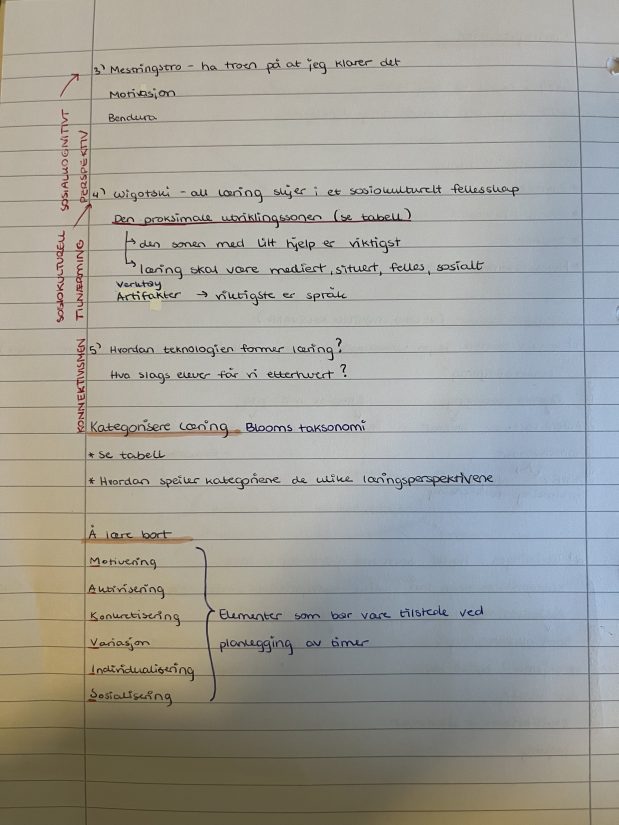 3) Mestringstro - ha troen på at jeg klarer det
Motivasjon
Bandura
SOSIALKOGNITIVT
PERSPEKTIV
4) Wigotski - all læring skjer i et sosiokulturelt fellesskap
Den proksimale utviklingssonen (se tabell)
↳ den sonen med litt hjelp er viktigst
↳ læring skal være mediert, situert, felles, sosialt
Verktøy
Artifakter → viktigste er språk
SOSIOKULTURELL
TILNÆRMING
5) Hvordan teknologien former læring?
Hva slags elever får vi etterhvert?
KONNEKTIVISMEN
Kategorisere læring Blooms taksonomi
* se tabell
* Hvordan speiler kategoriene de ulike læringsperspektivene
Å lære bort
Motivering
Aktivisering
Konkretisering
Variasjon
Individualisering
Sosialisering
Elementer som bør være tilstede ved
planlegging av timer